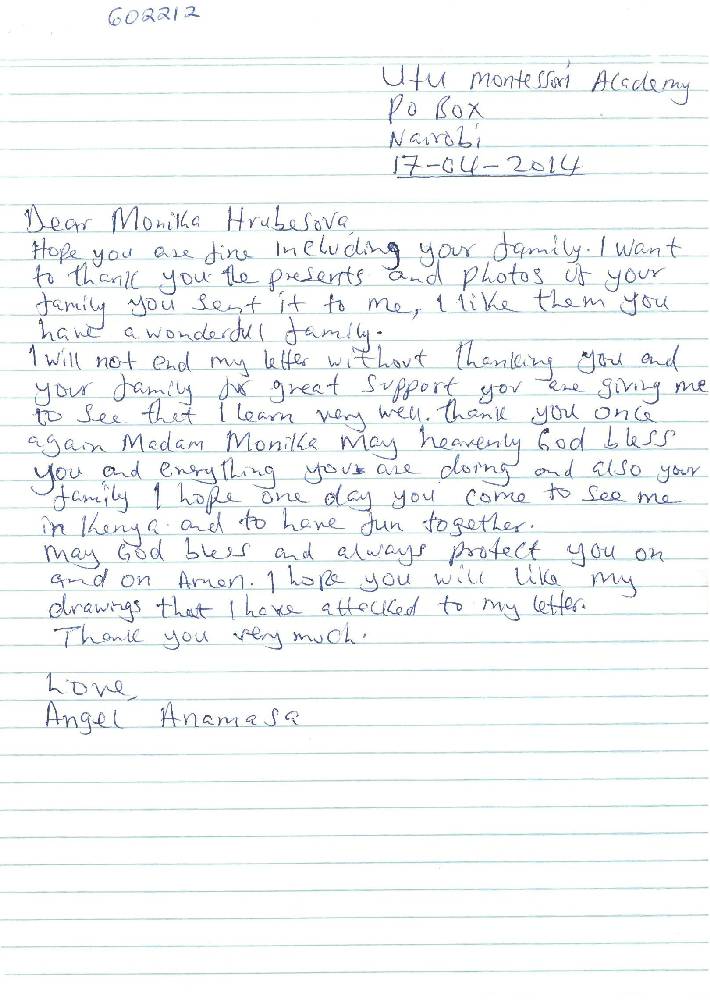 602212
Ufu Montessori Academy
Po Box
Nairobi
17-04-2014
Dear Monika Hrubesova,
Hope you are fine Including your family. I want
to thank you the presents and photos of your
family you sent it to me, I like them you
have a wonderfull family.
I will not end my letter without thanking you and
your family for great support you are giving me
to see that I learn very well. Thank you once
again Madam Monika May heavenly God bless
you and everything you are doing and also your
family I hope one day you come to see me
in Kenya and to have fun together.
May God bless and always protect you on
and on Amen. I hope you will like my
drawings that I have attacked to my letter.
Thank you very much.
Love,
Angel Anamasa